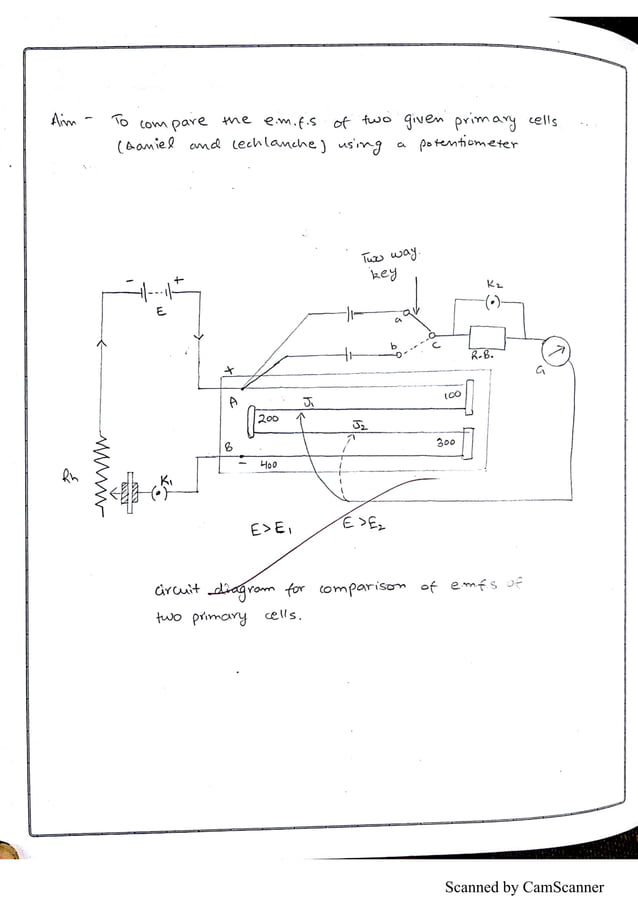 Aim - To compare the e.m.f.s of two given primary cells
(Daniel and Lechlanche) using a potentiometer
Two way
key
K2
- +
E
a
b
c
R.B.
G
+
A
100
J1
200
J2
B
300
-
400
Rh
K1
E>E1
E>E2
circuit diagram for comparison of emfs of
two primary cells.
Scanned by CamScanner